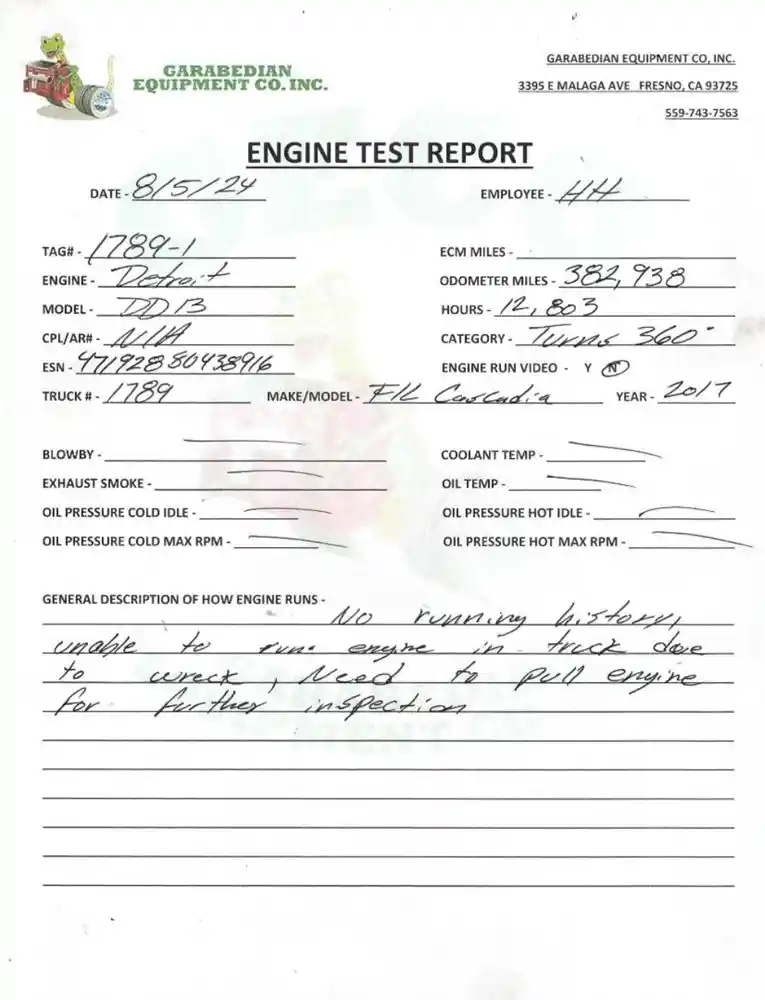 GARABEDIAN
EQUIPMENT CO. INC.
GARABEDIAN EQUIPMENT CO, INC.
3395 E MALAGA AVE FRESNO, CA 93725
559-743-7563
ENGINE TEST REPORT
DATE - 8/5/24 EMPLOYEE - HH
TAG# - 1789-1 ECM MILES -
ENGINE - Detroit ODOMETER MILES - 382,938
MODEL - DD13 HOURS - 12,803
CPL/AR# - N/A CATEGORY - Turns 360°
ESN - 47192880438916 ENGINE RUN VIDEO - Y N
TRUCK # - 1789 MAKE/MODEL - F/L Cascadia YEAR - 2017
BLOWBY - COOLANT TEMP -
EXHAUST SMOKE - OIL TEMP -
OIL PRESSURE COLD IDLE - OIL PRESSURE HOT IDLE -
OIL PRESSURE COLD MAX RPM - OIL PRESSURE HOT MAX RPM -
GENERAL DESCRIPTION OF HOW ENGINE RUNS -
No running history,
unable to run engine in truck due
to wreck, Need to pull engine
for further inspection